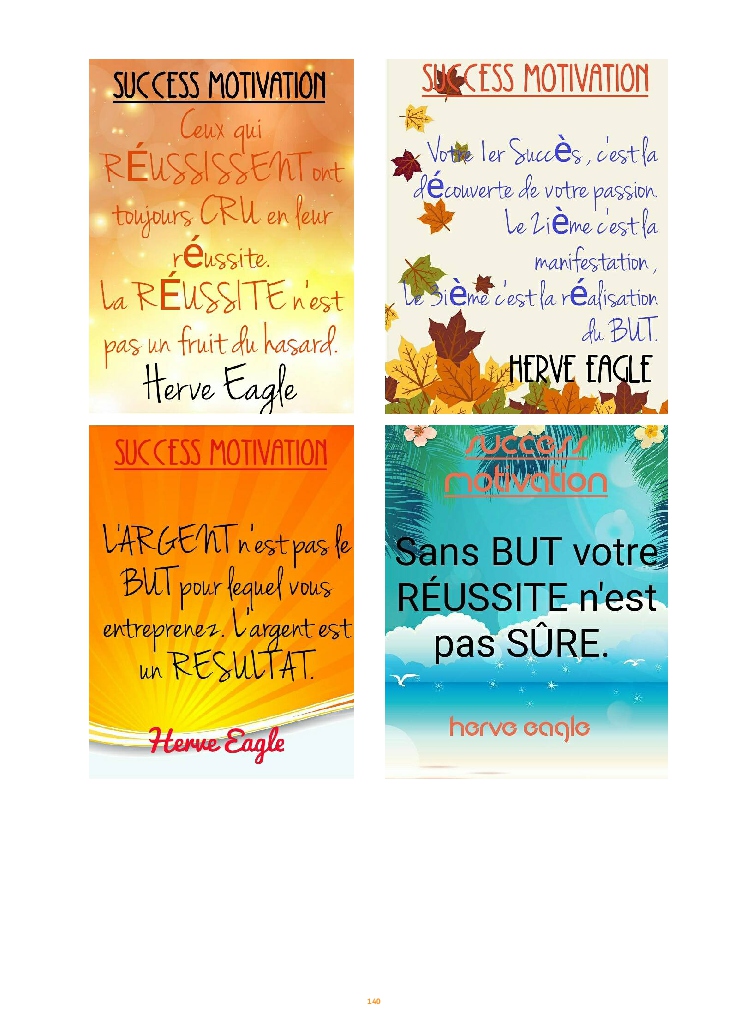 SUCCESS MOTIVATION
Ceux qui
RÉUSSISSENT ont
toujours CRU en leur
réussite.
La RÉUSSITE n'est
pas un fruit du hasard.
Herve Eagle
SUCCESS MOTIVATION
Votre 1er Succès, c'est la
découverte de votre passion.
Le 2ième c'est la
manifestation,
Le 3ième c'est la réalisation
du BUT.
HERVE EAGLE
SUCCESS MOTIVATION
L'ARGENT n'est pas le
BUT pour lequel vous
entreprenez. L'argent est
un RESULTAT.
Herve Eagle
success
motivation
Sans BUT votre
RÉUSSITE n'est
pas SÛRE.
herve eagle
140